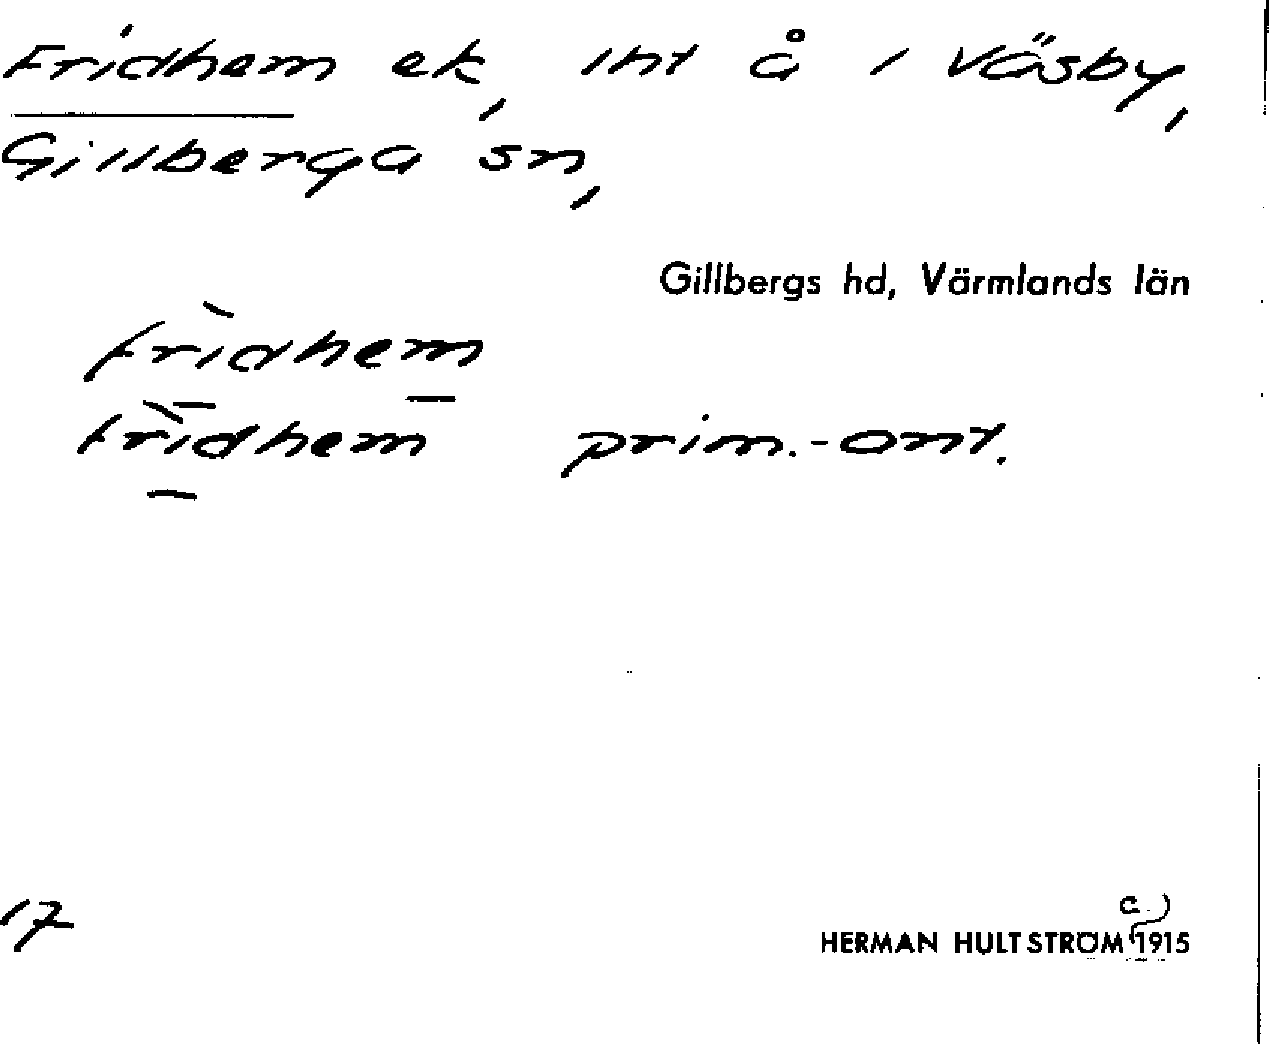 Fridhem ek, int å i Väsby,
Gillberga sn,
Gillbergs hd, Värmlands län
frìdhem
frìdhem prim.-ant.
17
HERMAN HULTSTRÖM c. 1915